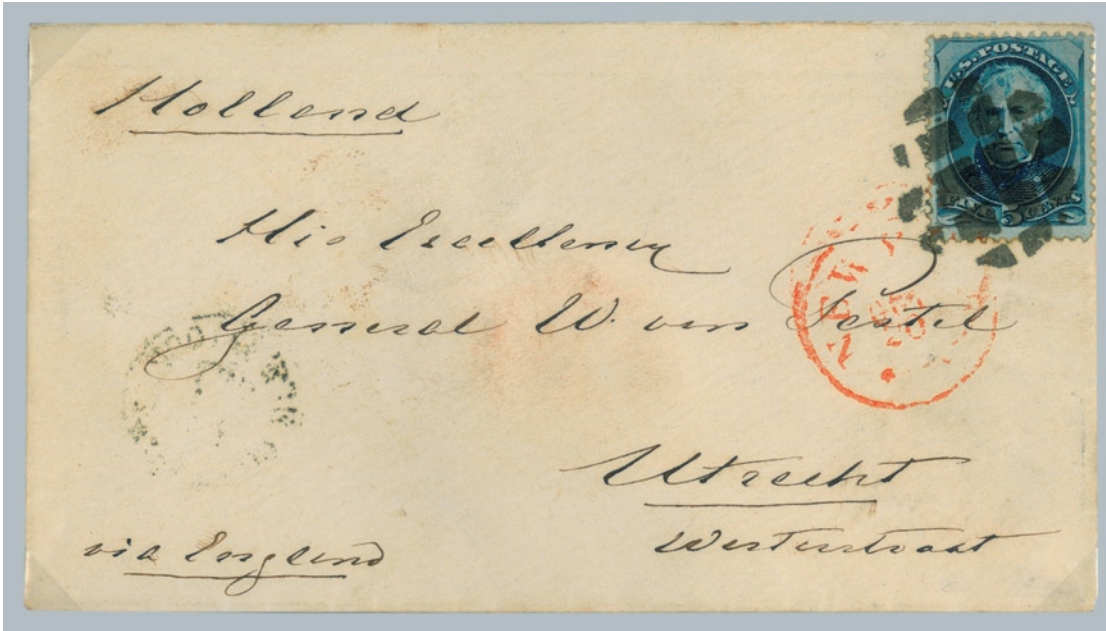 Holland
U.S. POSTAGE
FIVE 5 CENTS
His Excellency
General W. van
NEW
Utrecht
Westerstraat
via England